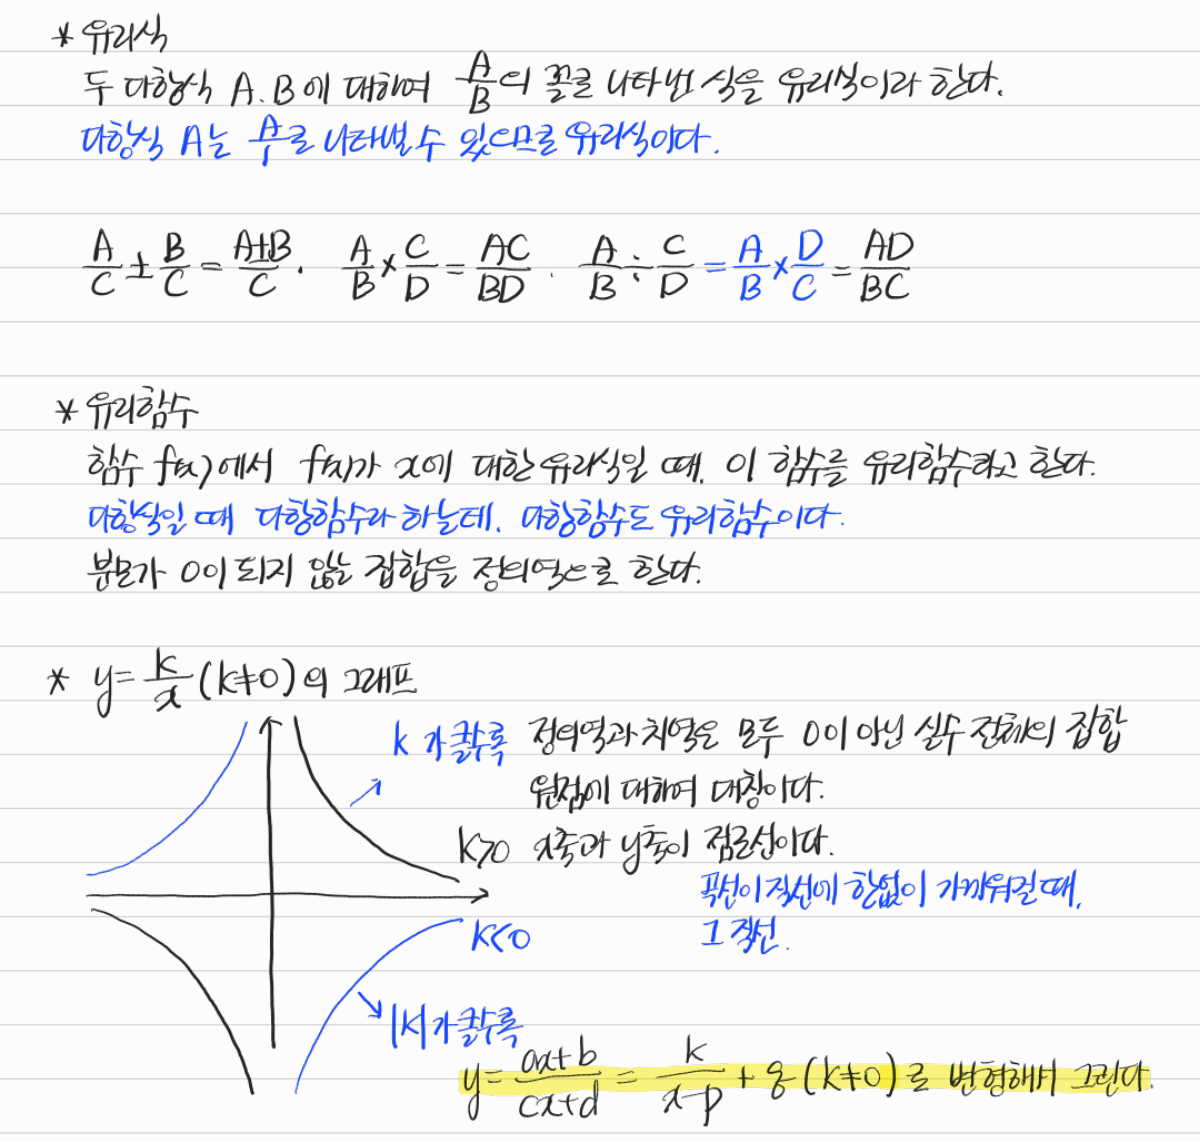 * 유리식
두 다항식 A, B에 대하여 A/B의 꼴로 나타낸 식을 유리식이라 한다.
다항식 A는 A/1로 나타낼 수 있으므로 유리식이다.
A/C ± B/C = A±B/C, A/B × C/D = AC/BD, A/B ÷ C/D = A/B × D/C = AD/BC
* 유리함수
함수 f(x)에서 f(x)가 x에 대한 유리식일 때, 이 함수를 유리함수라고 한다.
다항식일 때 다항함수라 하는데, 다항함수도 유리함수이다.
분모가 0이 되지 않는 집합을 정의역으로 한다.
* y = k/x (k≠0)의 그래프
k가 클수록
정의역과 치역은 모두 0이 아닌 실수 전체의 집합
원점에 대하여 대칭이다.
k>0
x축과 y축이 점근선이다.
곡선이 직선에 한없이 가까워질 때,
그 직선.
k<0
|k|가 클수록
y = ax+b/cx+d = k/x-p + q (k≠0)로 변형해서 그린다.